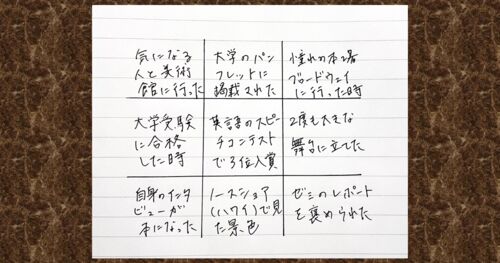 気になる
人と美術
館に行った
大学のパン
フレットに
掲載された
憧れの本場
ブロードウェイ
に行った時
大学受験
に合格
した時
英語のスピー
チコンテスト
で3位入賞
2度も大きな
舞台に立てた
自身のインタ
ビューが
本になった
ノースショア
(ハワイ)で見
た景色
ゼミのレポート
を褒められた